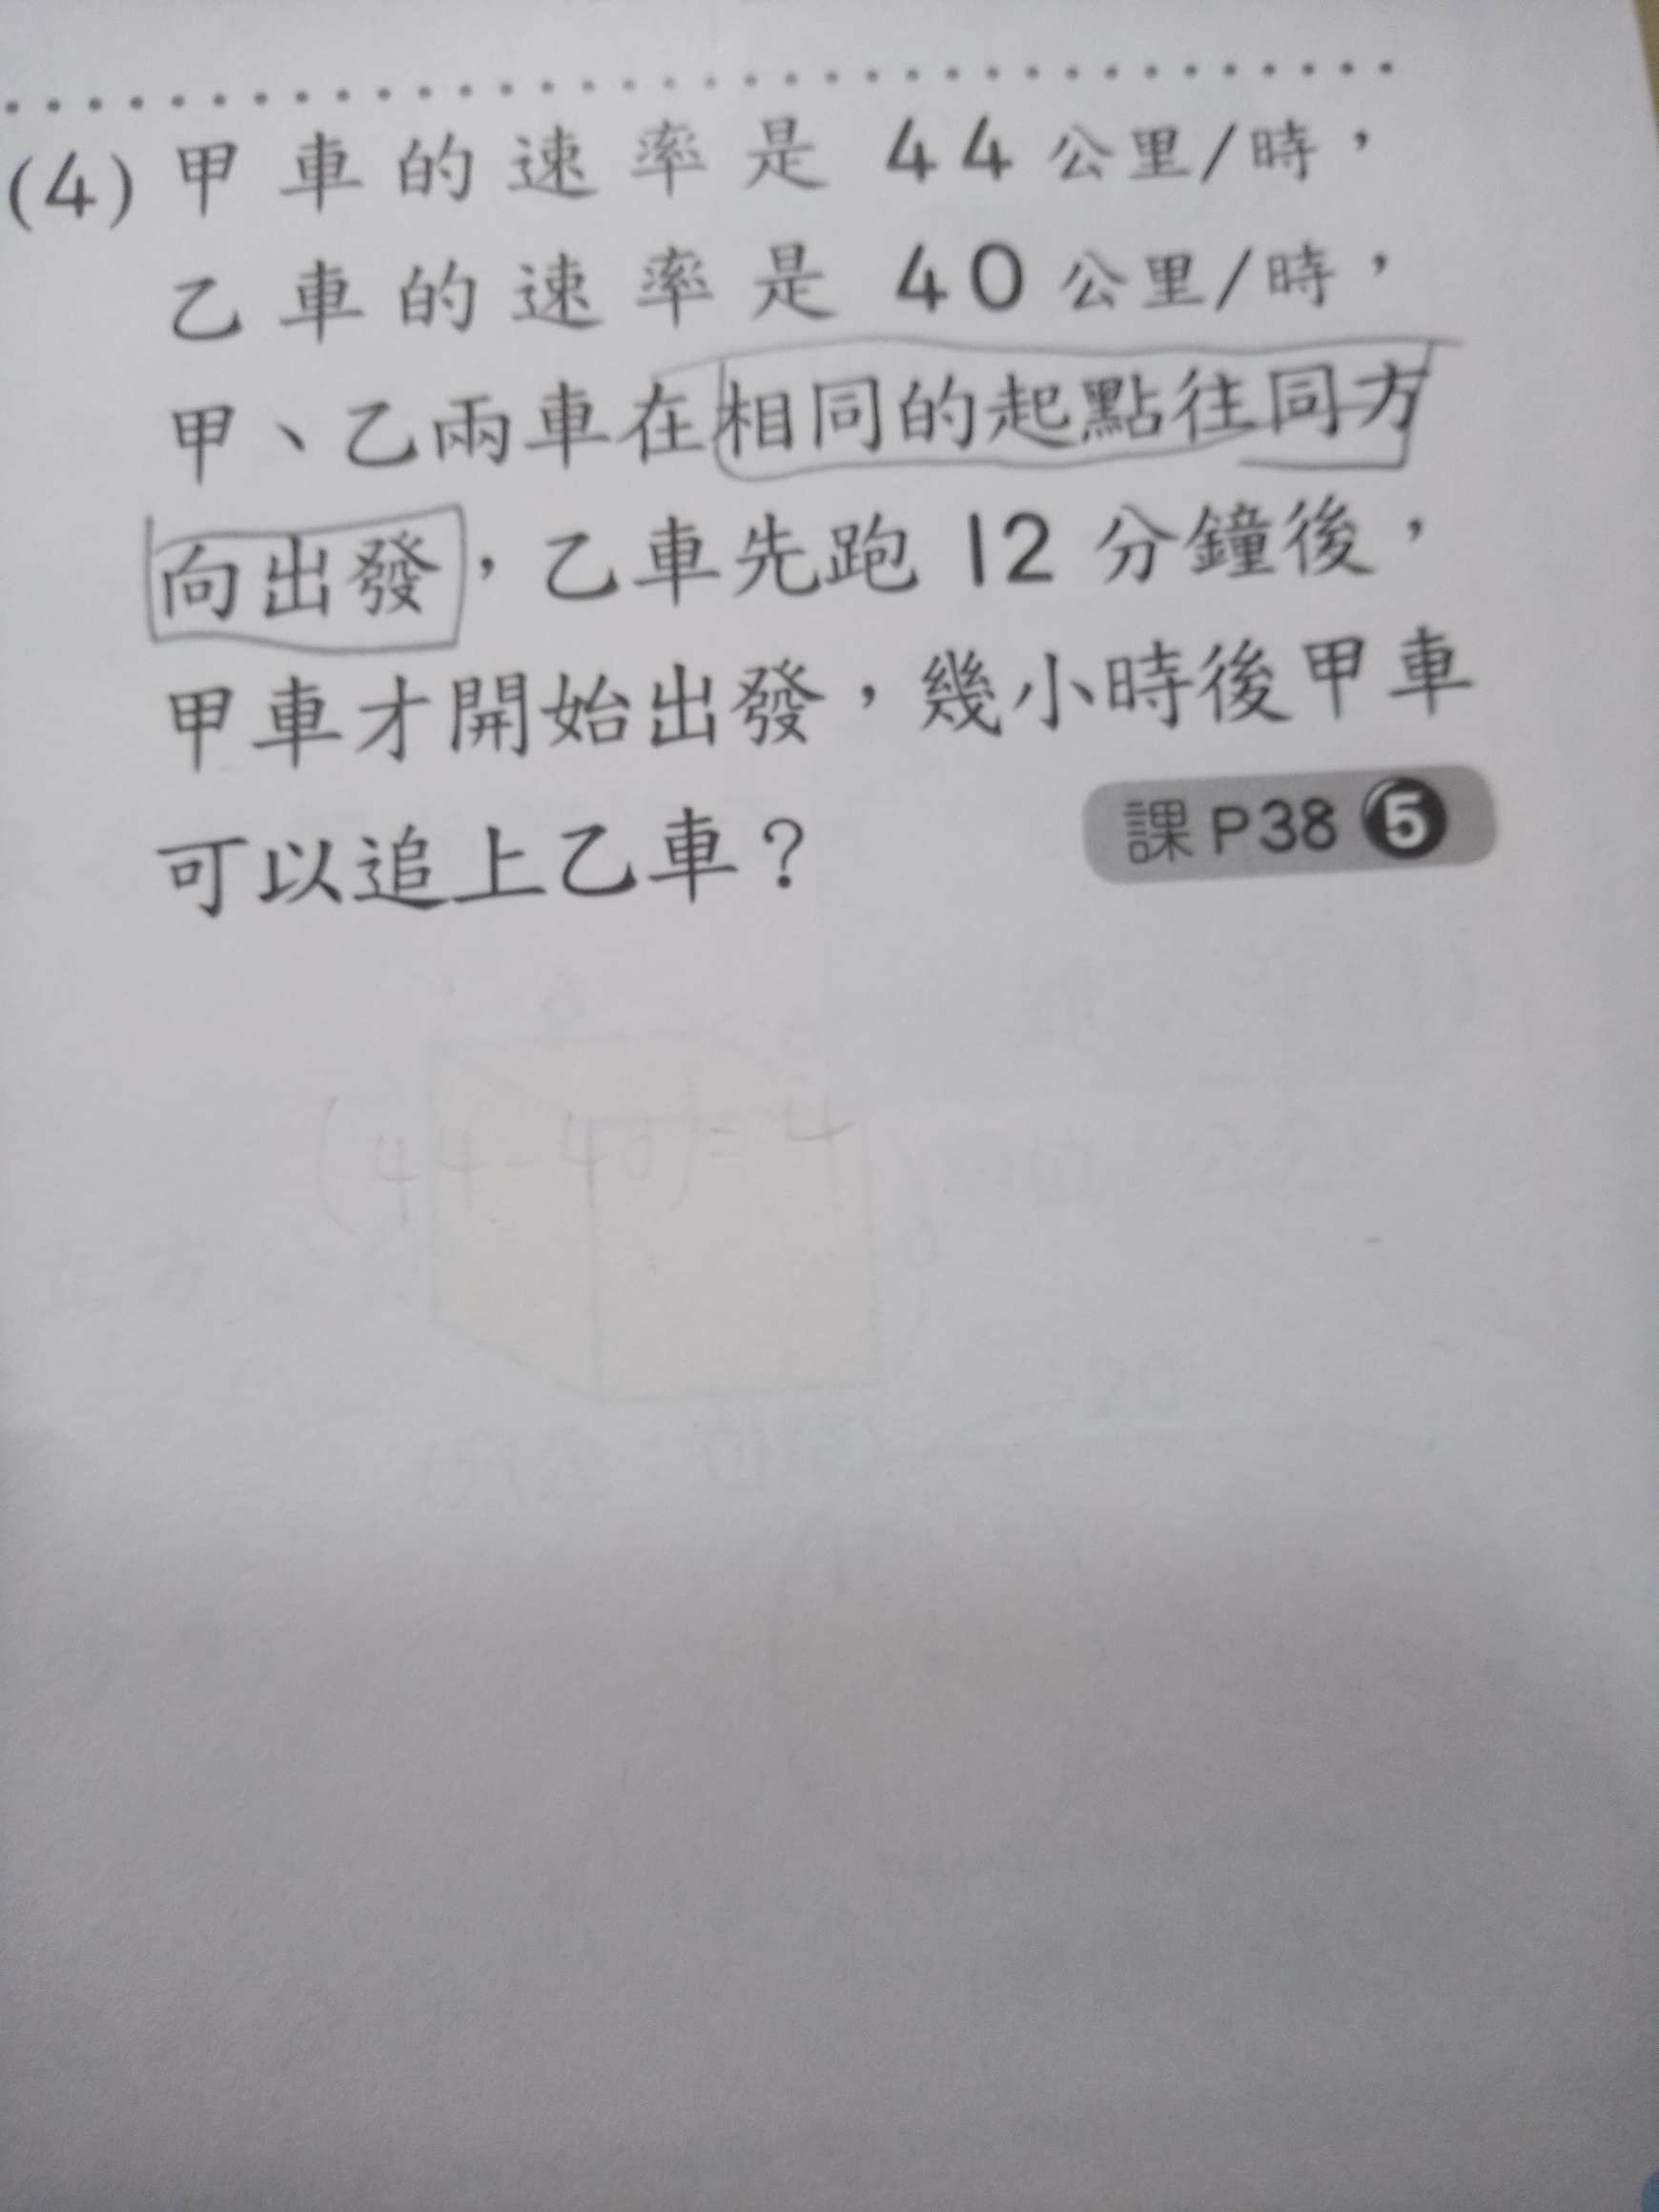 (4) 甲車的速率是 44 公里/時，
乙車的速率是 40 公里/時，
甲、乙兩車在相同的起點往同方
向出發，乙車先跑 12 分鐘後，
甲車才開始出發，幾小時後甲車
可以追上乙車？
課 P38 5
(44-40)=4